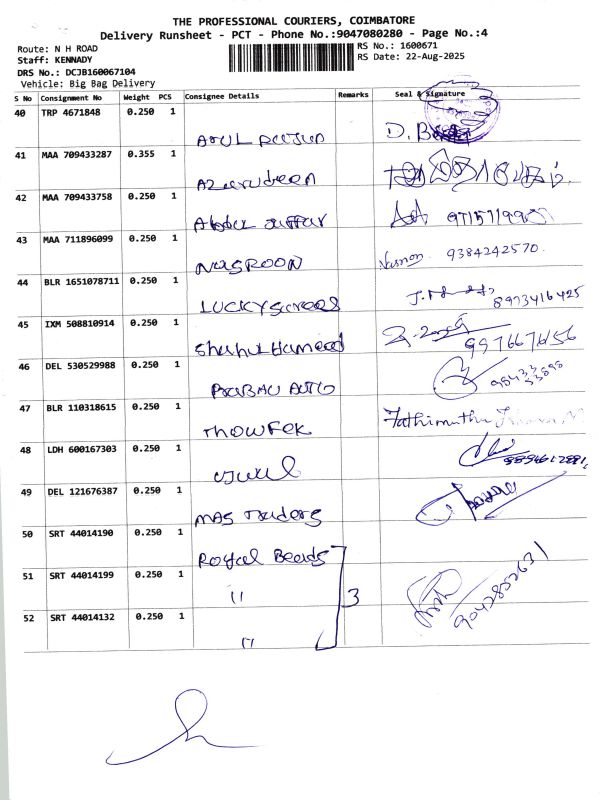 THE PROFESSIONAL COURIERS, COIMBATORE
Delivery Runsheet - PCT - Phone No.:9047080280 - Page No.:4
Route: N H ROAD
RS No.: 1600671
Staff: KENNADY
RS Date: 22-Aug-2025
DRS No.: DCJB160067104
Vehicle: Big Bag Delivery
S No Consignment No Weight PCS Consignee Details Remarks Seal & Signature
40 TRP 4671848 0.250 1
41 MAA 709433287 0.355 1
Azarudeen
42 MAA 709433758 0.250 1
Abdul Jaffar
43 MAA 711896099 0.250 1
NASROON 9384242570
44 BLR 1651078711 0.250 1
LUCKY 8973416425
45 IXM 508810914 0.250 1
Shahul Hameed 9976676156
46 DEL 530529988 0.250 1
PRABAU AUTO
47 BLR 110318615 0.250 1
THOWFEK Fathimuthu
48 LDH 600167303 0.250 1
49 DEL 121676387 0.250 1
MAS Traders
50 SRT 44014190 0.250 1
Royal Beads
51 SRT 44014199 0.250 1
" 3
52 SRT 44014132 0.250 1
" 9042852631